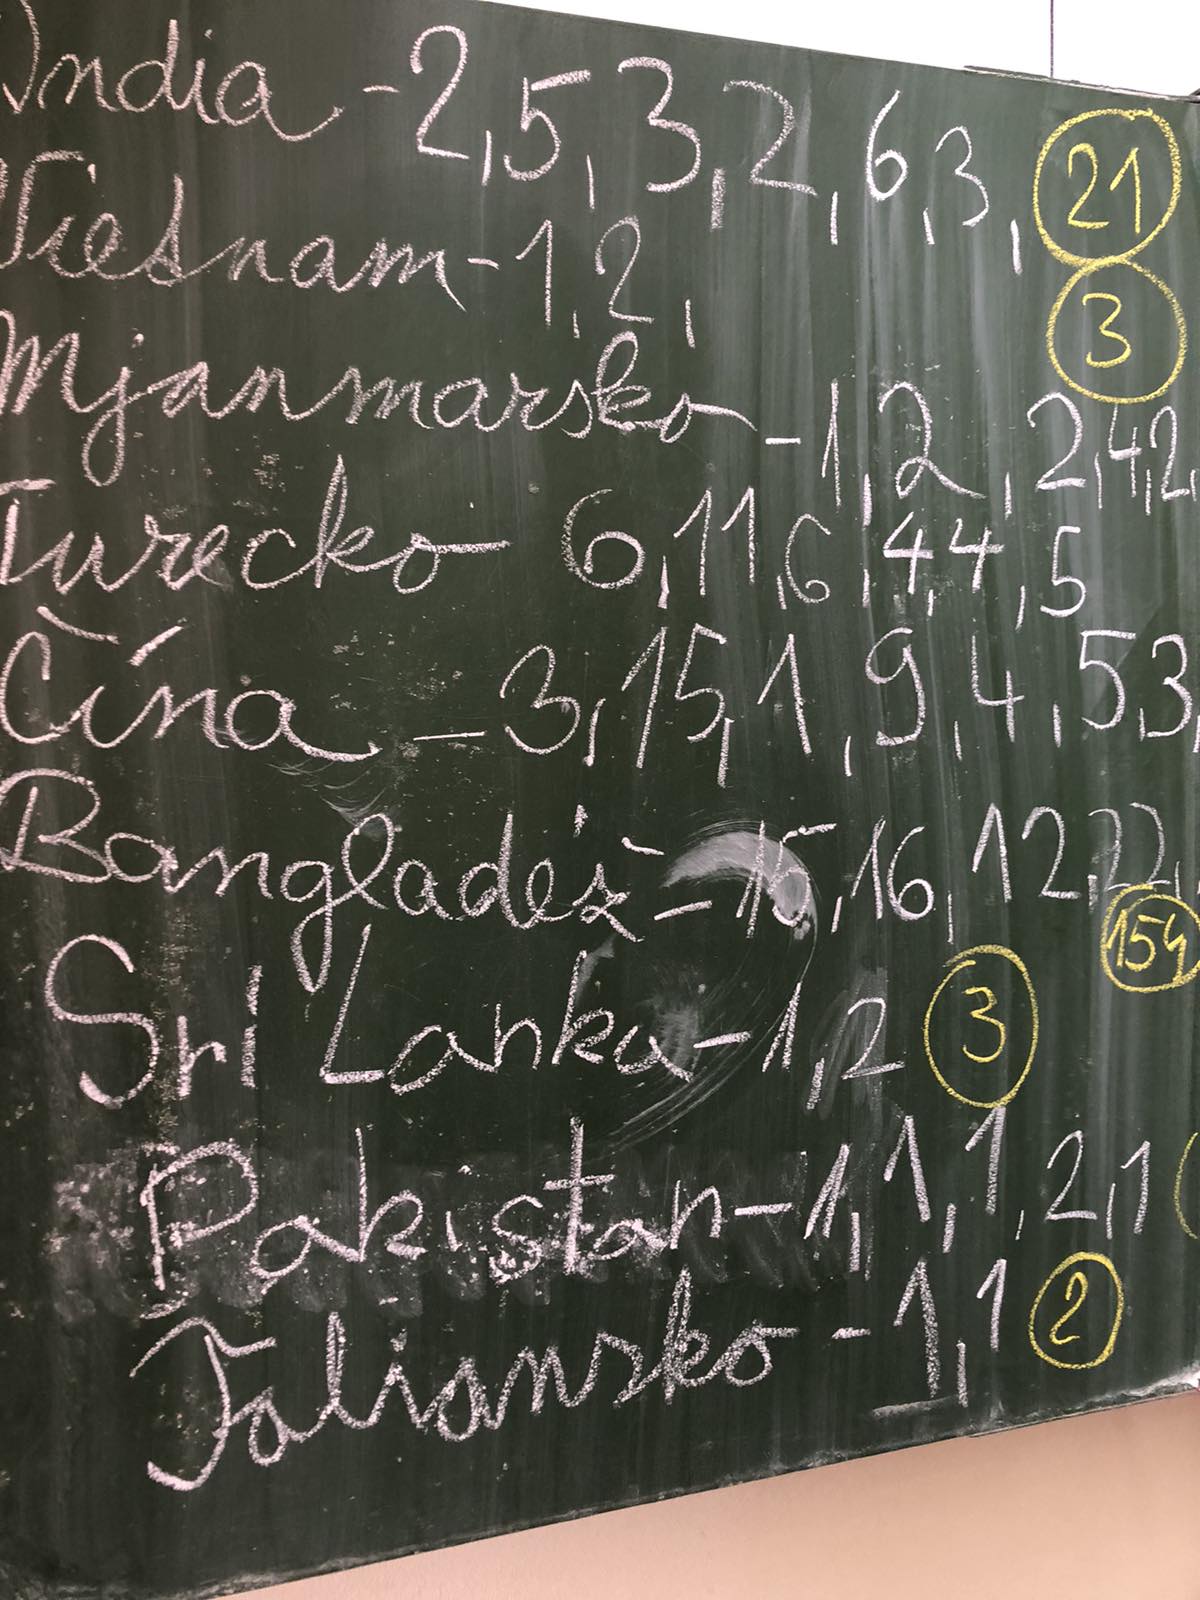 India - 2, 5, 3, 2, 6, 3, 21
Viesnam - 1, 2, 3
Mjanmarsko - 1, 2, 2, 4, 2,
Turecko - 6, 11, 6, 4, 4, 5
Čína - 3, 15, 1, 9, 4, 5, 3,
Bangladéž - 15, 16, 12, 22, 154
Sri Lanka - 1, 2 3
Pakistan - 1, 1, 1, 2, 1
Taliansko - 1, 1 2